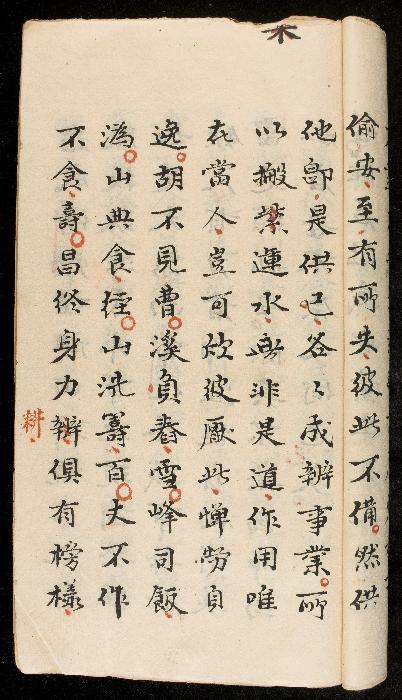 偷安至有所失彼此不備然供
他即是供己各〻成辦事業所
以搬柴運水無非是道作用唯
在當人豈可欣彼厭此憚勞自
逸胡不見曹溪負舂雪峰司飯
溈山典食徑山洗籌百丈不作
不食壽昌終身力辦俱有榜樣
耕